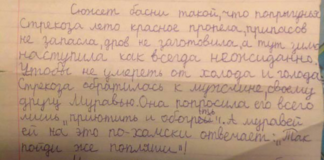 Сюжет басни такой, что попрыгунья
Стрекоза лето красное пропела, припасов
не запасла, дров не заготовила, а тут зима
наступила как всегда неожиданно.
Чтобы не умереть от холода и голода
Стрекоза обратилась к мужчине, своему
другу Муравью. Она попросила его всего
лишь "приютить и обогреть". А муравей
ей на это по-хамски отвечает: "Так
пойди же попляши"!